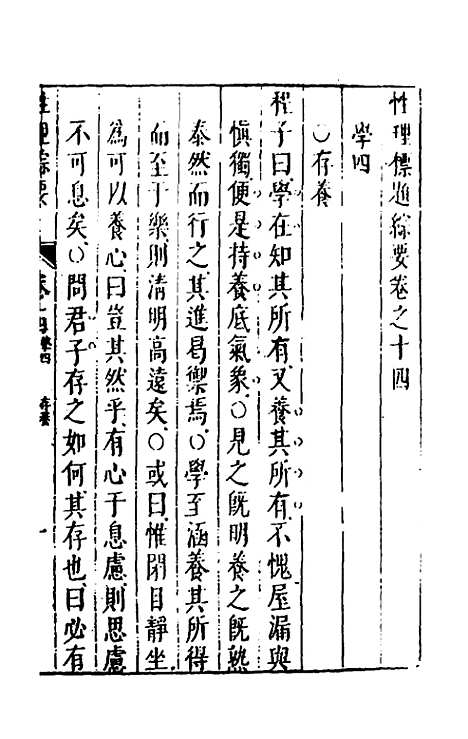 性理標題綜要卷之十四
學四
○存養
程子曰學在知其所有又養其所有不愧屋漏與
愼獨便是持養底氣象○見之旣明養之旣熟
泰然而行之其進曷禦焉○學至涵養其所得
而至于樂則清明高遠矣○或曰惟閉目靜坐
爲可以養心曰豈其然乎有心于息慮則思慮
不可息矣○問君子存之如何其存也曰必有
性理綜要
卷十四學四
存養
一